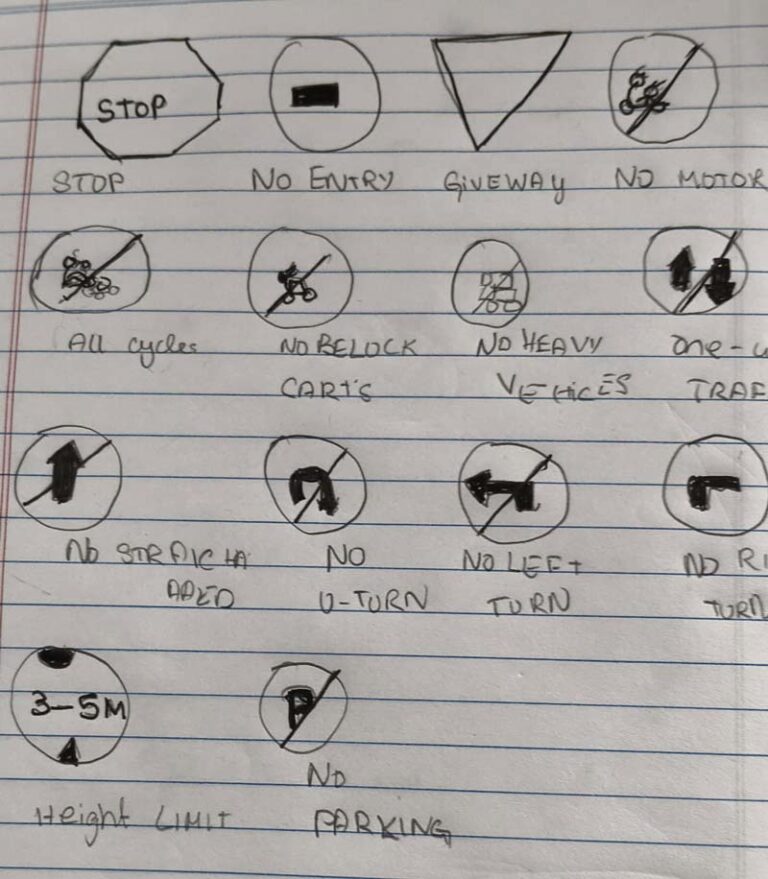 STOP
STOP NO ENTRY GIVEWAY NO MOTOR
All cycles NO BELOCK NO HEAVY one-
CARTS VEHICES TRAF
NO STRAIC HA NO NO LEFT NO RI
AD ED U-TURN TURN TURN
3-5M P
NO
Height LIMIT PARKING